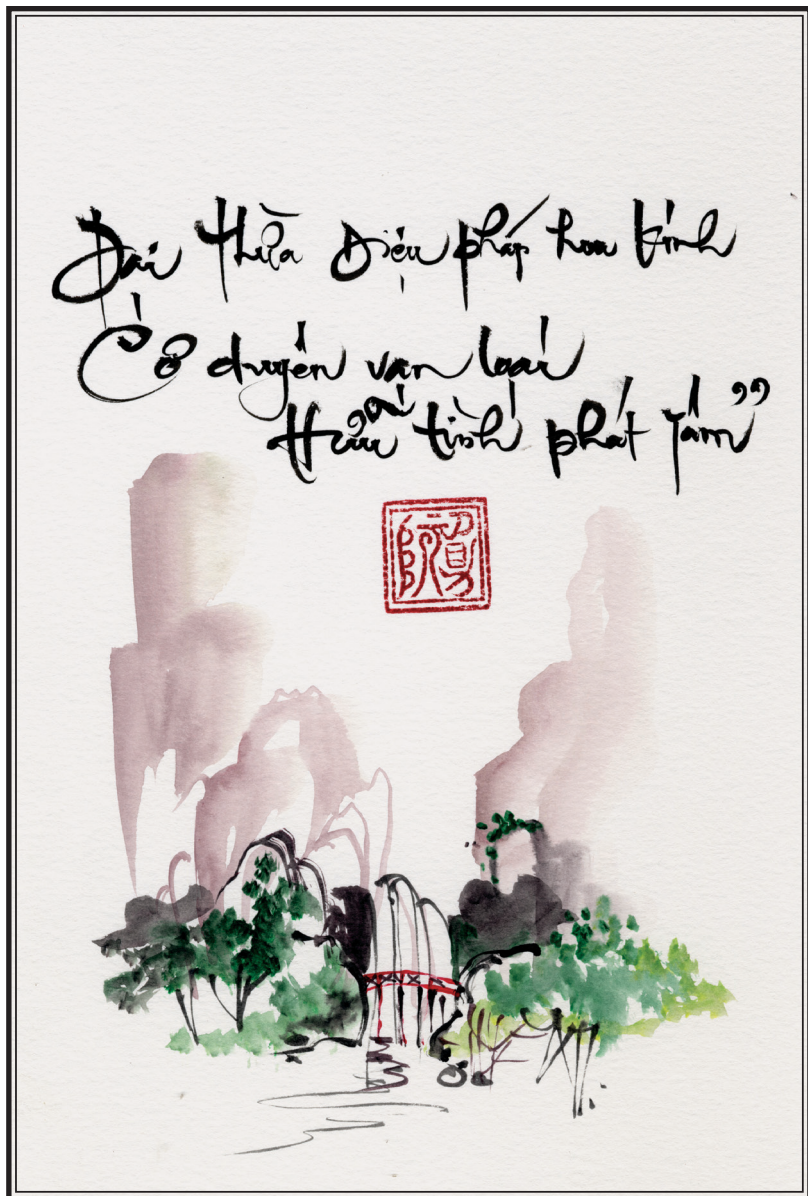 Đại thừa Diệu pháp hoa kinh
duyên vạn loài
Hữu tình phát tâm”